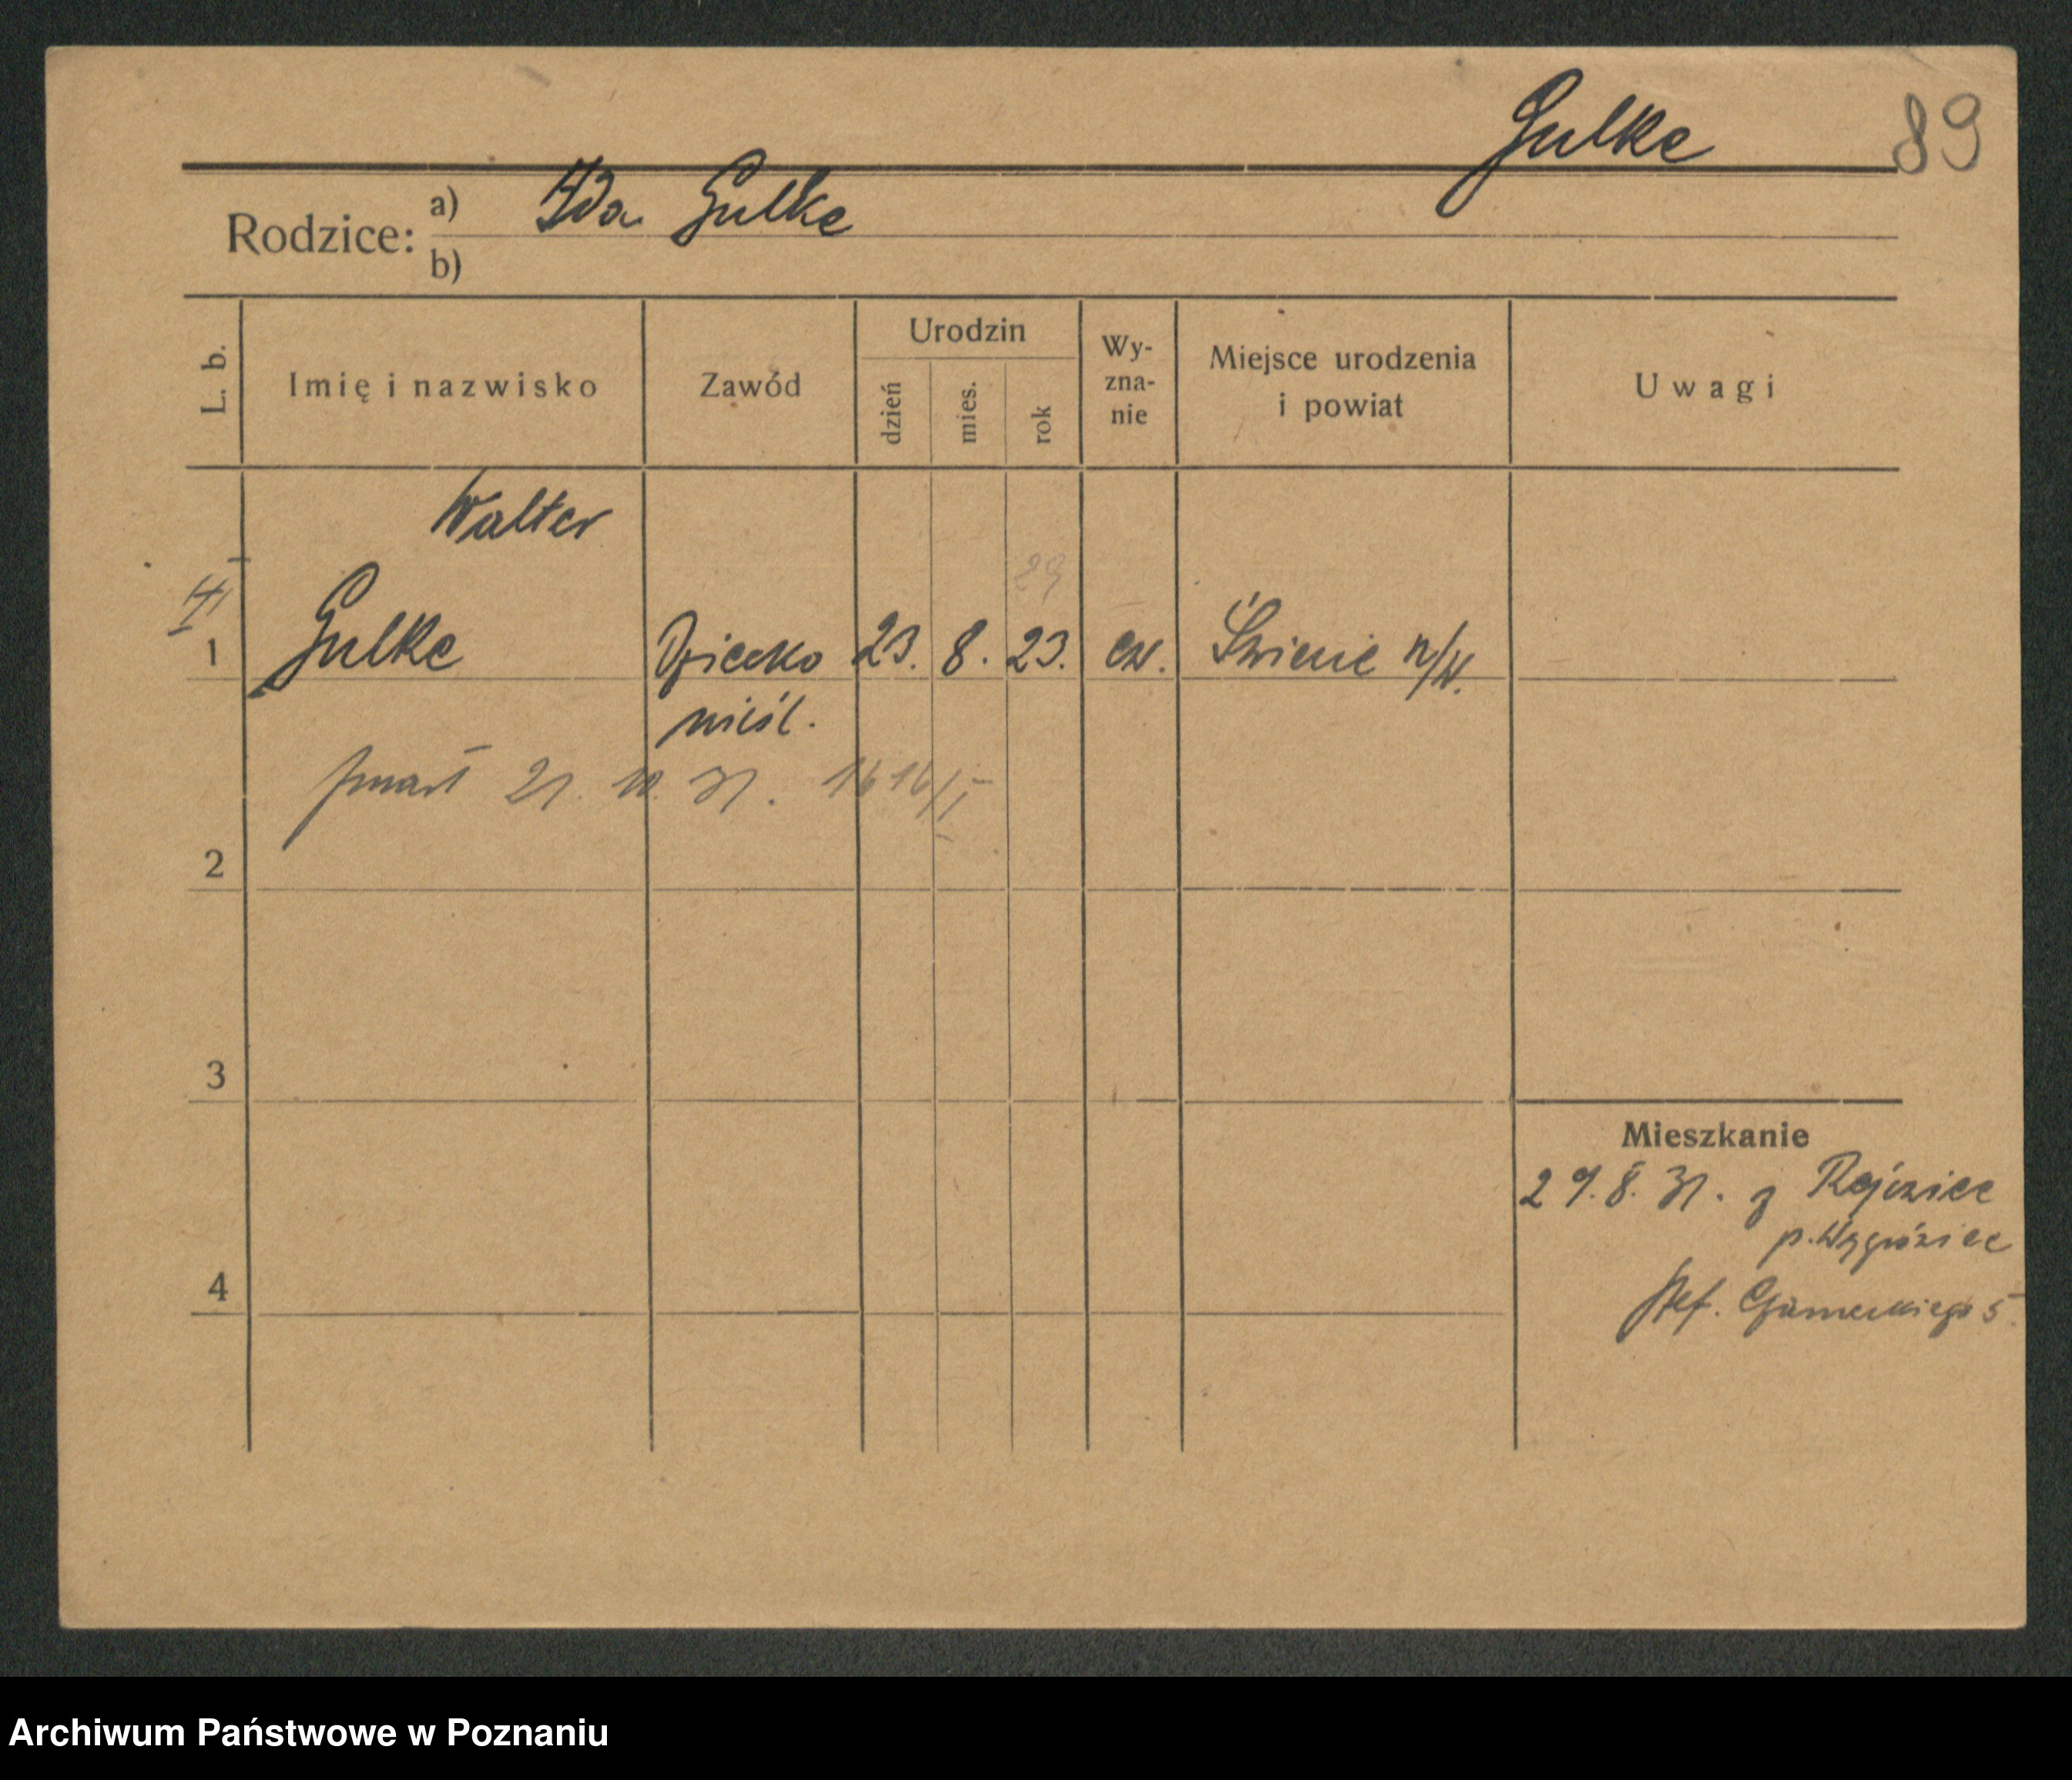 Gulke 89
Rodzice: a) Ida Gulke
b)
L. b. Imię i nazwisko Zawód Urodzin dzień mies. rok Wy-zna-nie Miejsce urodzenia i powiat Uwagi
Walter
29
1 Gulke Dziecko 23. 8. 23. ew. Świecie n/W.
nieśl.
zmarł 21. 10. 31. 1616/I
2
3
Mieszkanie
29. 8. 31. z
p. Wągrówiec
4 Stef. Czarneckiego 5.
Archiwum Państwowe w Poznaniu